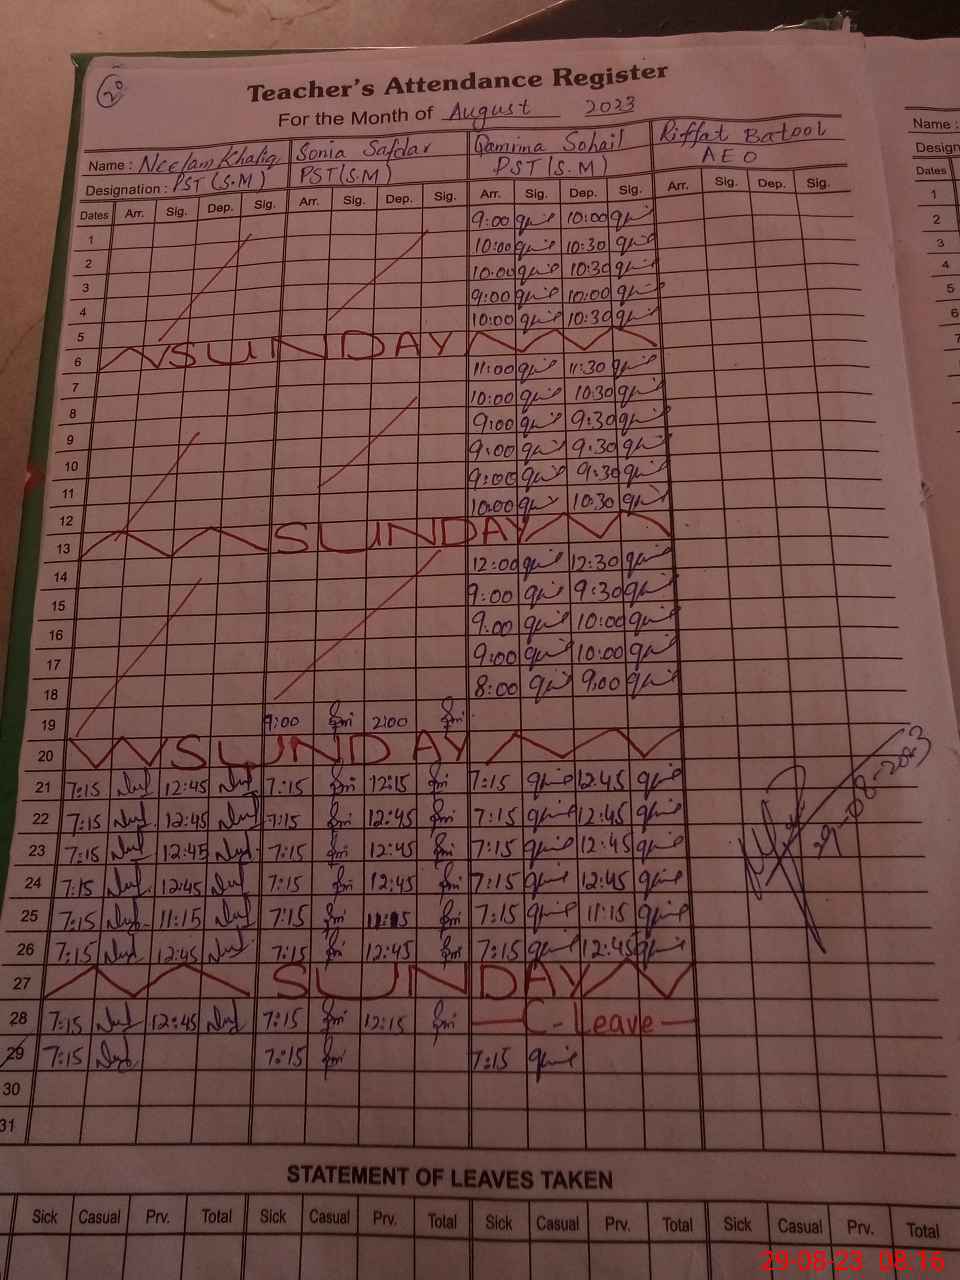 20
Teacher's Attendance Register
For the Month of August 2023
Name : Neelam Khaliq Sonia Safdar Qamrina Sohail Riffat Batool
Designation : PST (S.M) PST (S.M) PST (S.M) AEO
Dates Arr. Sig. Dep. Sig. Arr. Sig. Dep. Sig. Arr. Sig. Dep. Sig. Arr. Sig. Dep. Sig.
1 9:00 10:00
2 10:00 10:30
3 10:00 10:30
4 9:00 10:00
5 10:00 10:30
6 SUNDAY
7 11:00 11:30
8 10:00 10:30
9 9:00 9:30
10 9:00 9:30
11 9:00 9:30
12 10:00 10:30
13 SUNDAY
14 12:00 12:30
15 9:00 9:30
16 9:00 10:00
17 9:00 10:00
18 8:00 9:00
19 9:00 2:00
20 SUNDAY
21 7:15 12:45 7:15 12:15 7:15 12:45
22 7:15 12:45 7:15 12:45 7:15 12:45
23 7:15 12:45 7:15 12:45 7:15 12:45
24 7:15 12:45 7:15 12:45 7:15 12:45
25 7:15 11:15 7:15 11:15 7:15 11:15
26 7:15 12:45 7:15 12:45 7:15 12:45
27 SUNDAY
28 7:15 12:45 7:15 12:15 C-Leave
29 7:15 7:15 7:15
30
31
29-08-2023
STATEMENT OF LEAVES TAKEN
Sick Casual Prv. Total Sick Casual Prv. Total Sick Casual Prv. Total Sick Casual Prv. Total
Name :
Design
Dates
1
2
3
4
5
6
7
29-08-23 08:16